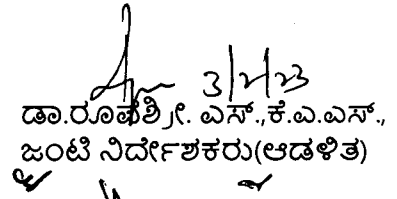 3/2/23
ಡಾ.ರೂಪಶ್ರೀ. ಎಸ್.,ಕೆ.ಎ.ಎಸ್.,
ಜಂಟಿ ನಿರ್ದೇಶಕರು(ಆಡಳಿತ)